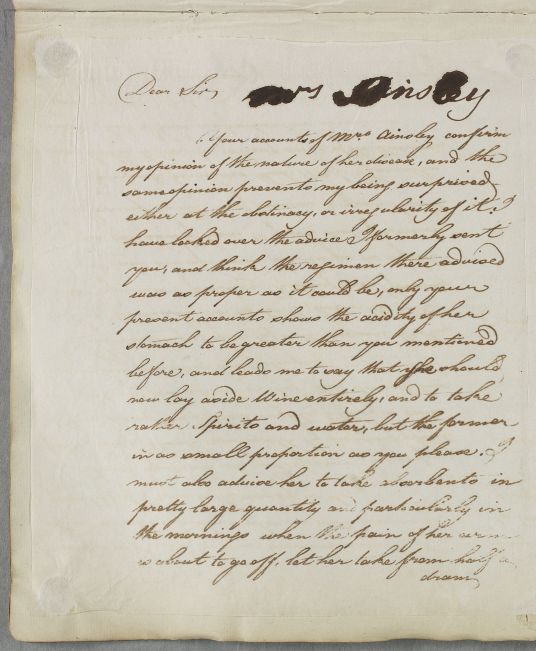 Dear Sir,
Mrs Ainsley
Your accounts of Mrs Ainsley confirm
my opinion of the nature of her disease, and the
same opinion prevents my being surprised
either at the obstinacy, or irregularity of it. I
have looked over the advice I formerly sent
you, and think the regimen there advised
was as proper as it could be, only your
present accounts shows the acidity of her
stomach to be greater than you mentioned
before, and leads me to say that she should
now lay aside Wine entirely, and to take
rather Spirits and water, but the former
in as small proportion as you please. I
must also advise her to take absorbents in
pretty large quantity and particularly in
the mornings when the pain of her arm
is about to go off, let her take from half a
dram